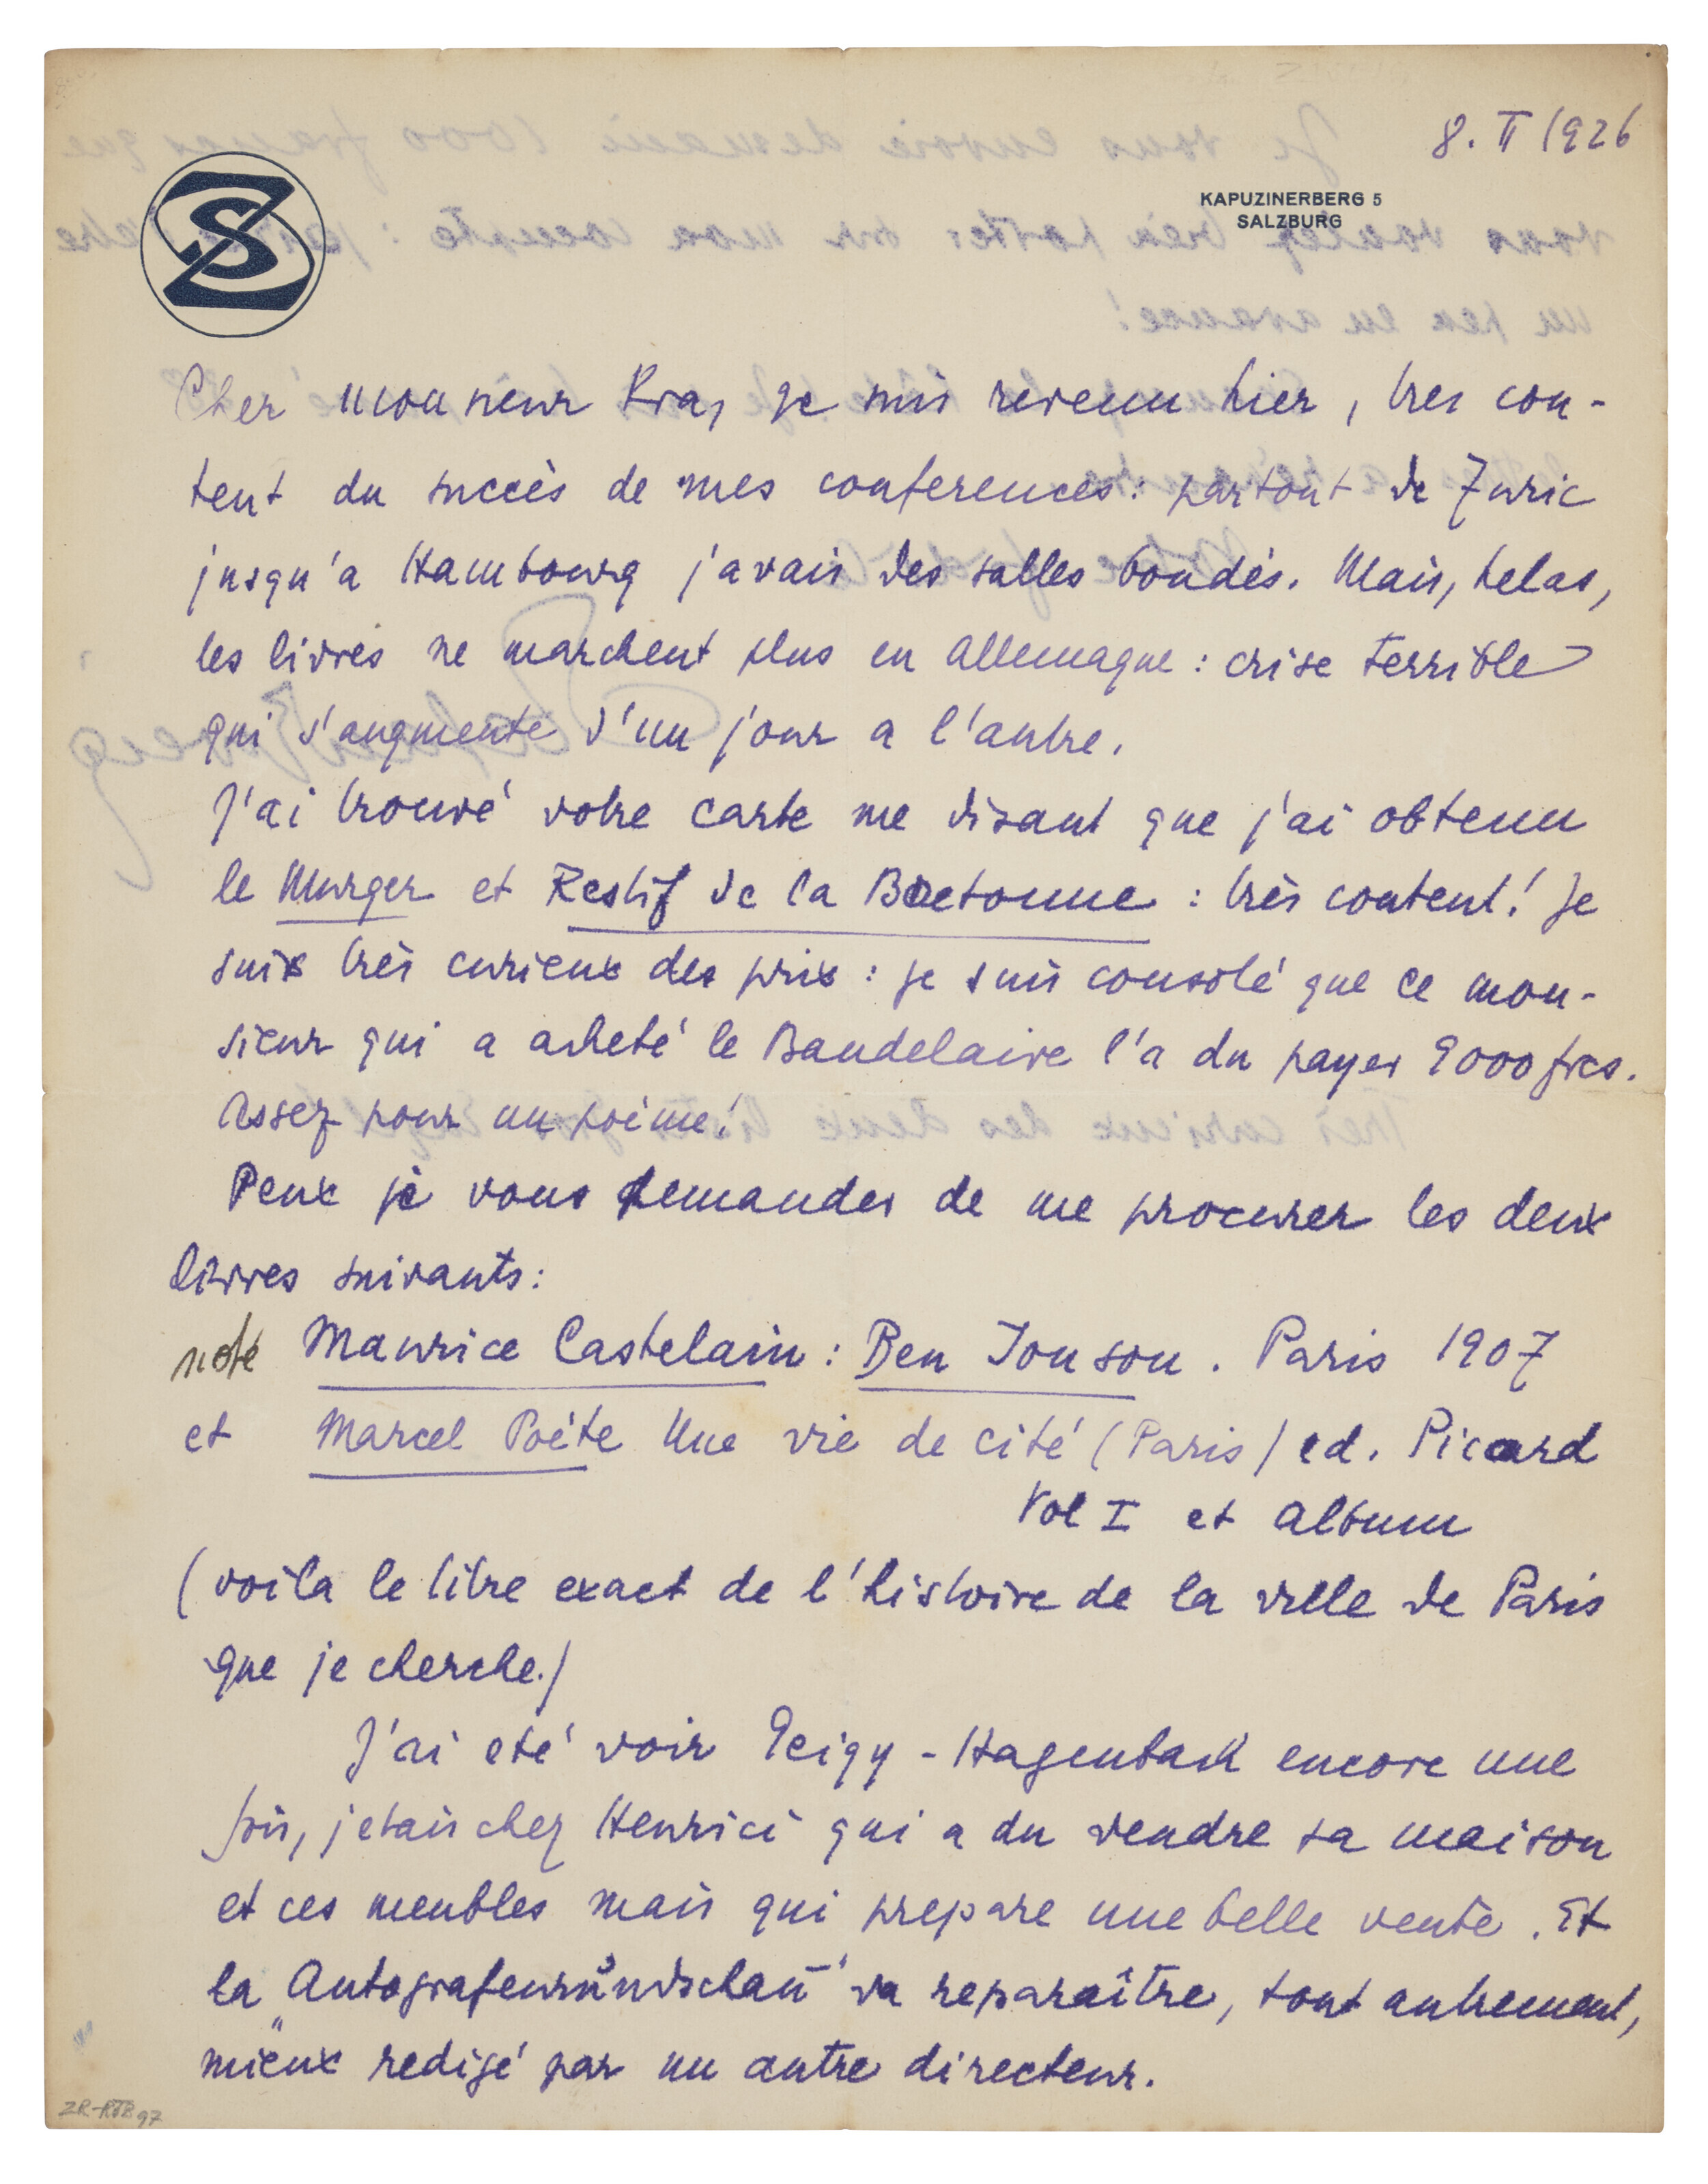 8. II 1926
SZ
KAPUZINERBERG 5
SALZBURG
Cher monsieur Kra, je suis revenu hier, tres con-
tent du succès de mes conferences: partout de Zuric
jusqu'a Hambourg j'avais des salles bondés. Mais, helas,
les livres ne marchent plus en Allemagne: crise terrible
qui s'augmente d'un jour a l'autre.
J'ai trouvé votre carte me disant que j'ai obtenu
le Murger et Restif de la Bretonne: très content! Je
suis très curieux des prix: je suis consolé que ce mon-
sieur qui a acheté le Baudelaire l'a du payer 9000 frcs.
Assez pour un poème!
Peux je vous demander de me procurer les deux
livres suivants:
noté Maurice Castelain: Ben Jonson. Paris 1907
et Marcel Poéte Une vie de cité (Paris) ed. Picard
Vol I et Album
(voila le titre exact de l'histoire de la ville de Paris
que je cherche.)
J'ai eté voir Geigy-Hagenbach encore une
fois, j'etais chez Henrici qui a du vendre sa maison
et ces meubles mais qui prepare une belle vente. Et
la „Autografenrundschau" va reparaître, tout autrement,
mieux redigé par un autre directeur.
ZR-RTB97